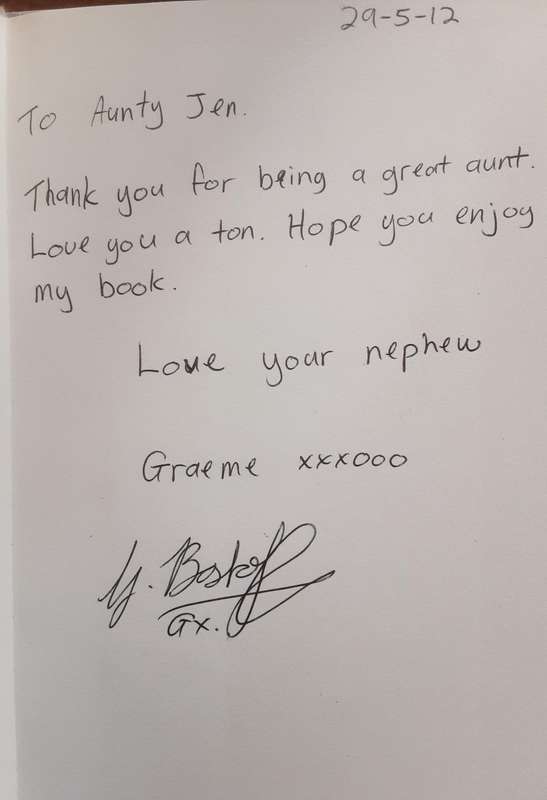 29-5-12
To Aunty Jen.
Thank you for being a great aunt.
Love you a ton. Hope you enjoy
my book.
Love your nephew
Graeme xxxooo
G.
Gx.